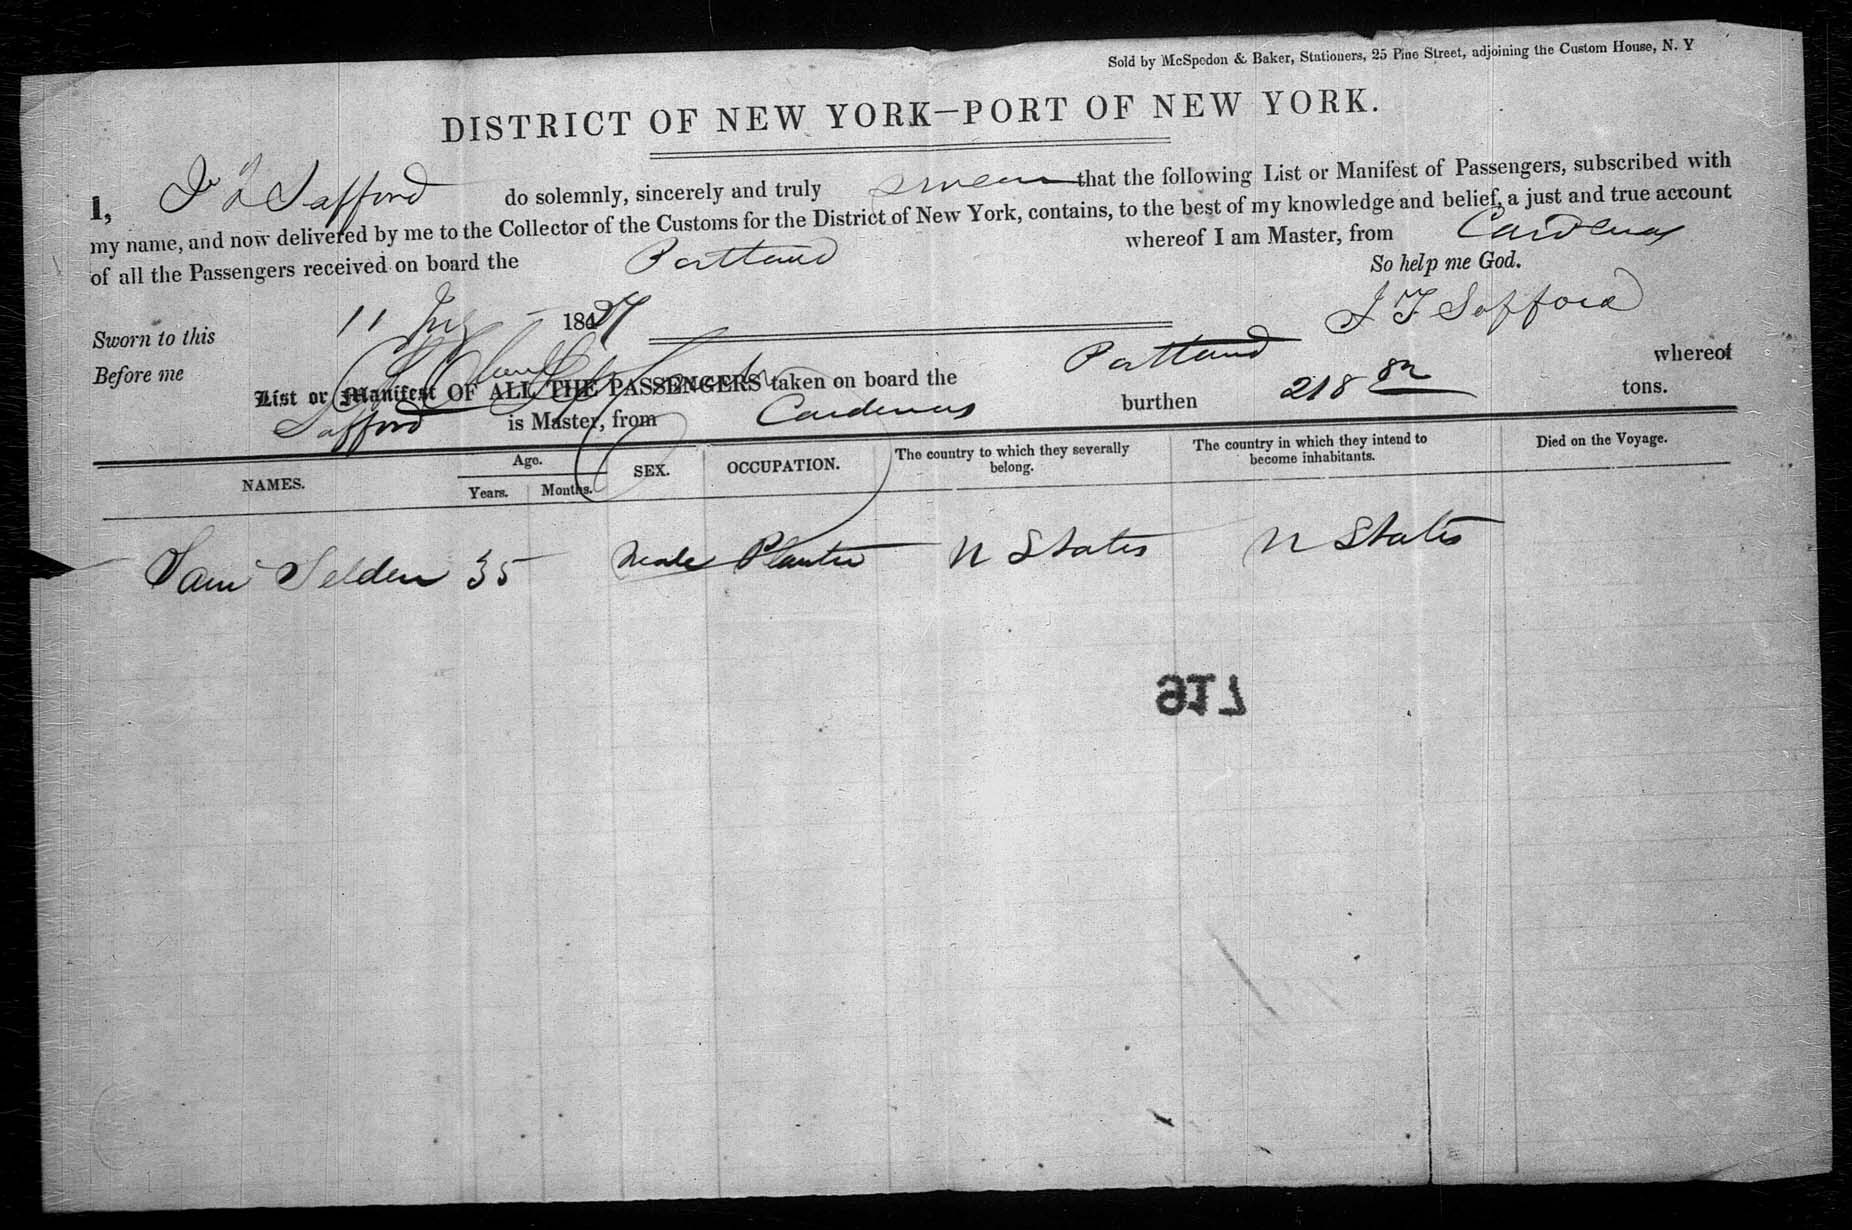 Sold by McSpedon & Baker, Stationers, 25 Pine Street, adjoining the Custom House, N. Y
DISTRICT OF NEW YORK—PORT OF NEW YORK.
I, Safford do solemnly, sincerely and truly swear that the following List or Manifest of Passengers, subscribed with
my name, and now delivered by me to the Collector of the Customs for the District of New York, contains, to the best of my knowledge and belief, a just and true account
of all the Passengers received on board the Portland whereof I am Master, from Cardenas
So help me God.
Sworn to this 11 184 J F Safford
Before me
List or Manifest OF ALL THE PASSENGERS taken on board the Portland whereof
Safford is Master, from Cardenas burthen 218 tons.
NAMES. Age. Years. Months. SEX. OCCUPATION. The country to which they severally belong. The country in which they intend to become inhabitants. Died on the Voyage.
Sam Selden 35 Male Planter U States U States
917